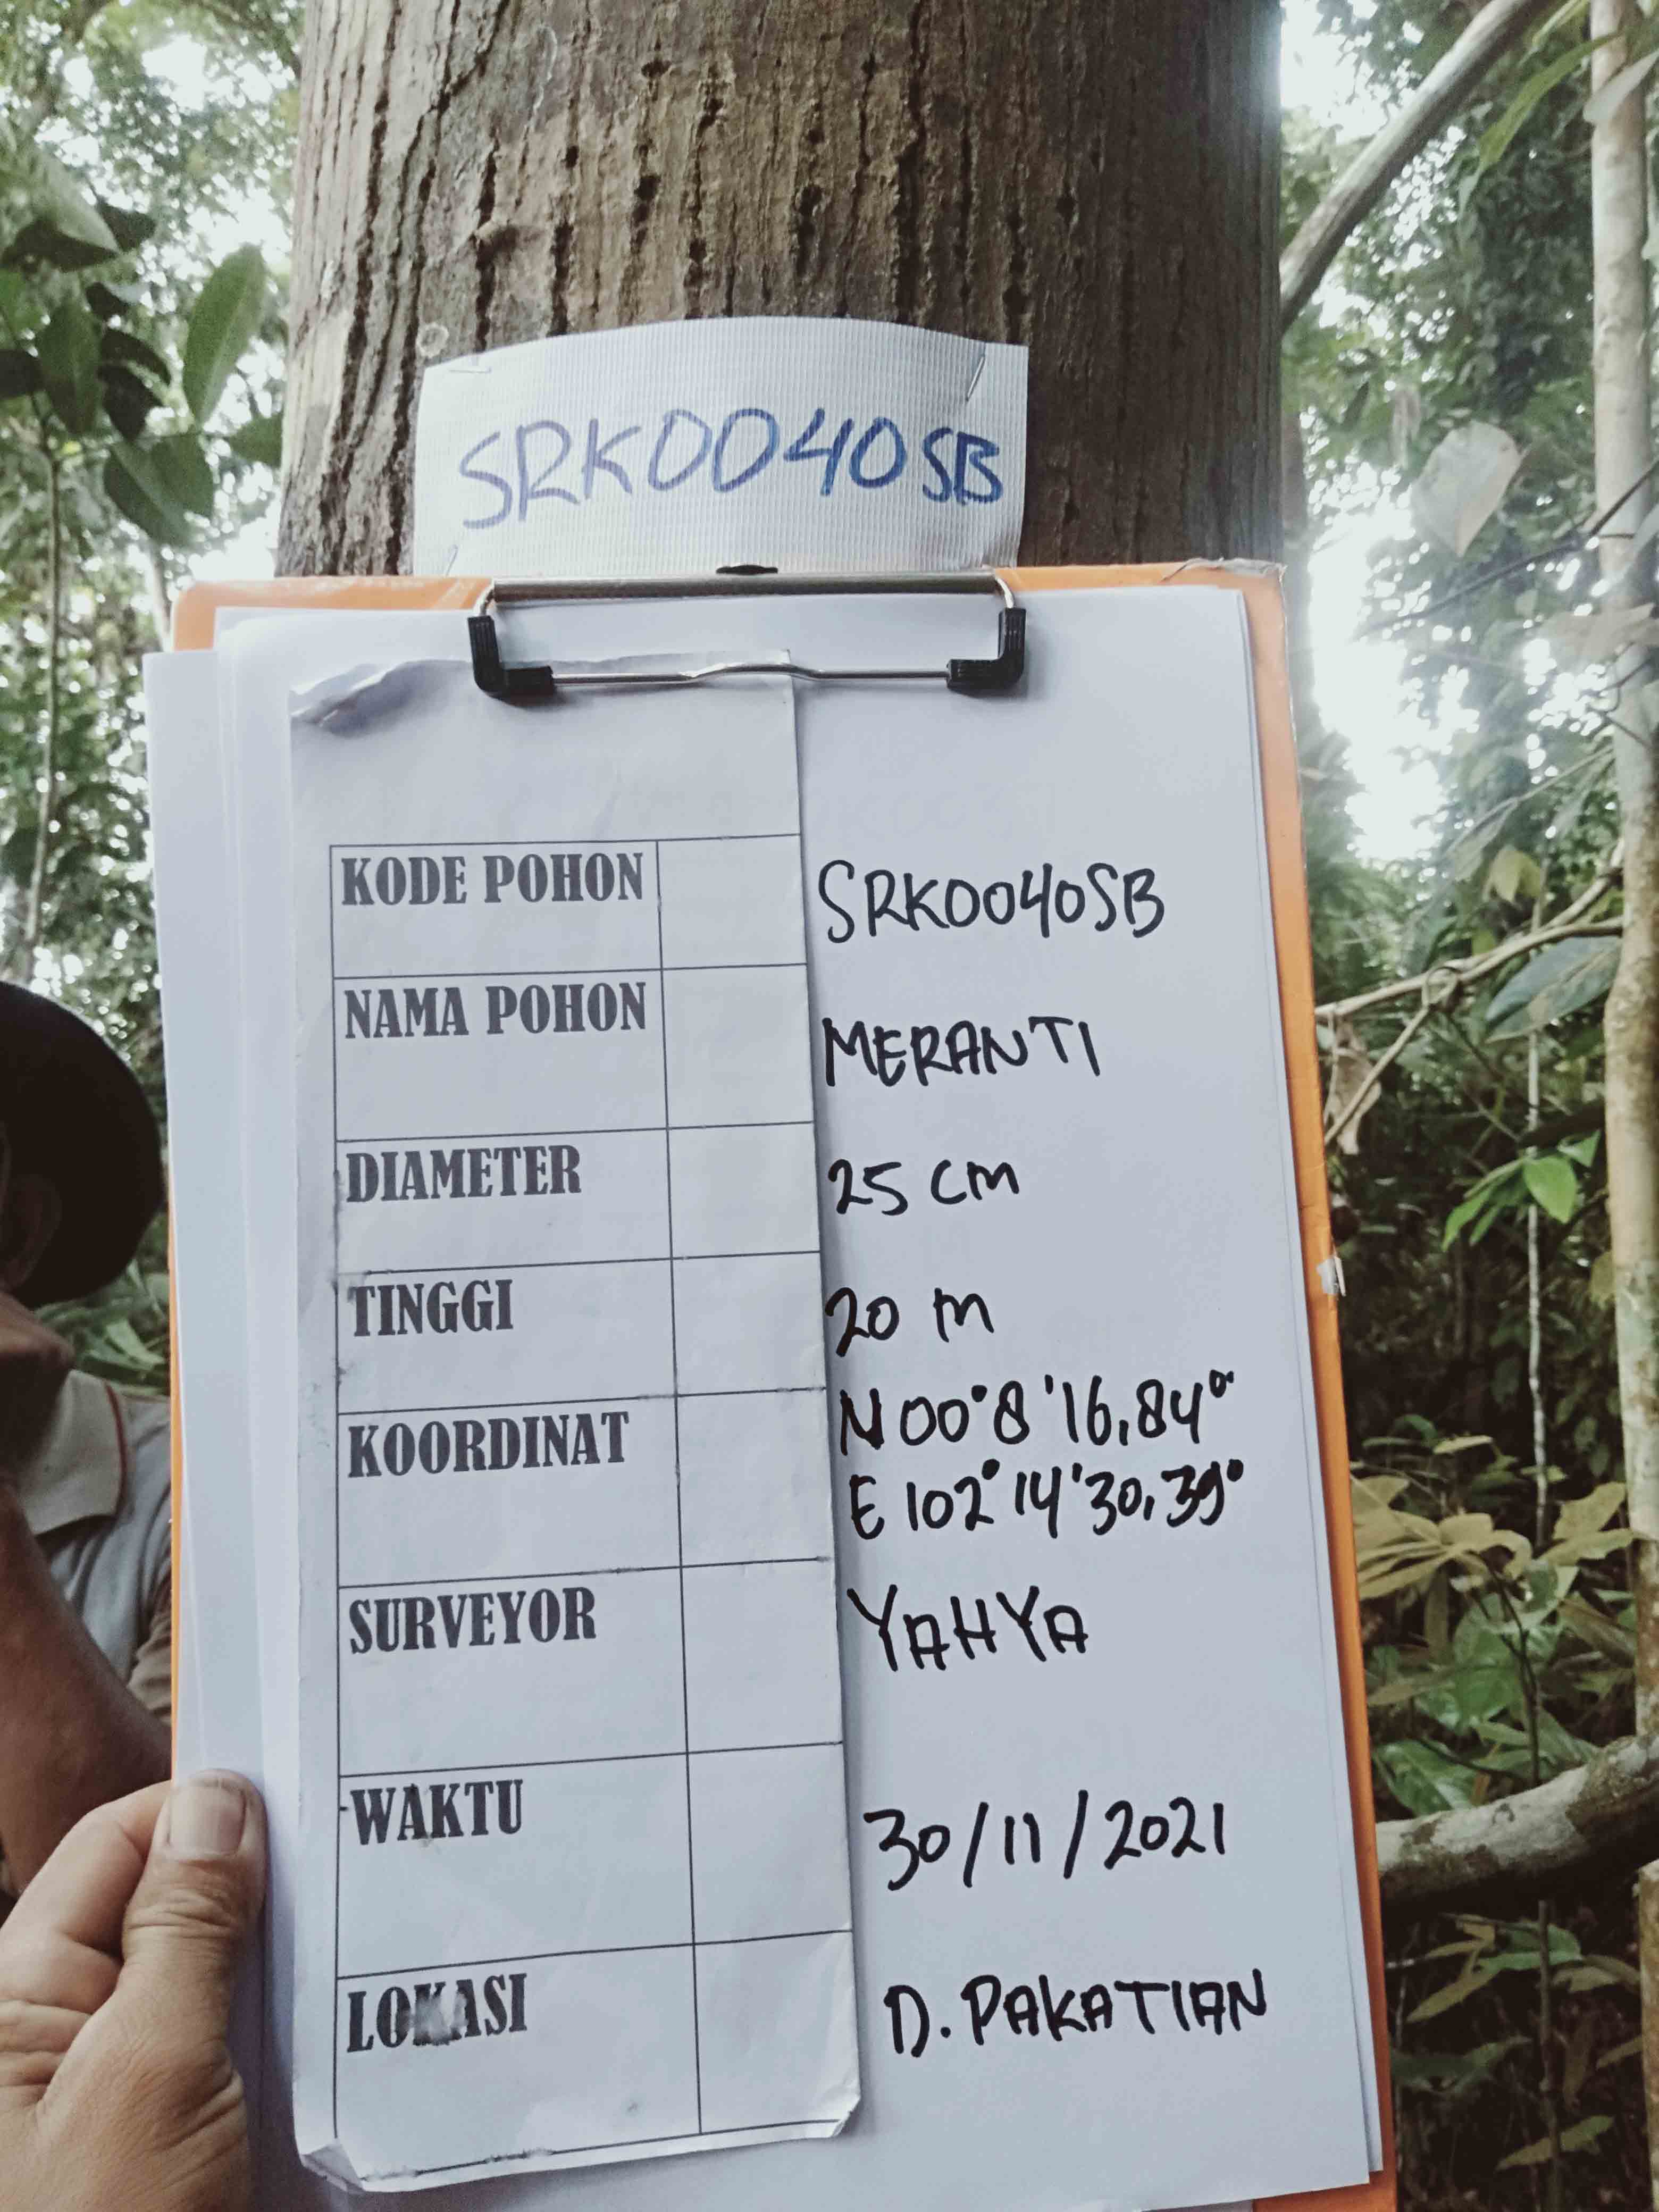 SRK0040SB
KODE POHON SRK0040SB
NAMA POHON MERANTI
DIAMETER 25 cm
TINGGI 20 m
KOORDINAT N 00°8'16,84"
E 102°14'30,39"
SURVEYOR YAHYA
WAKTU 30/11/2021
LOKASI D. PAKATIAN